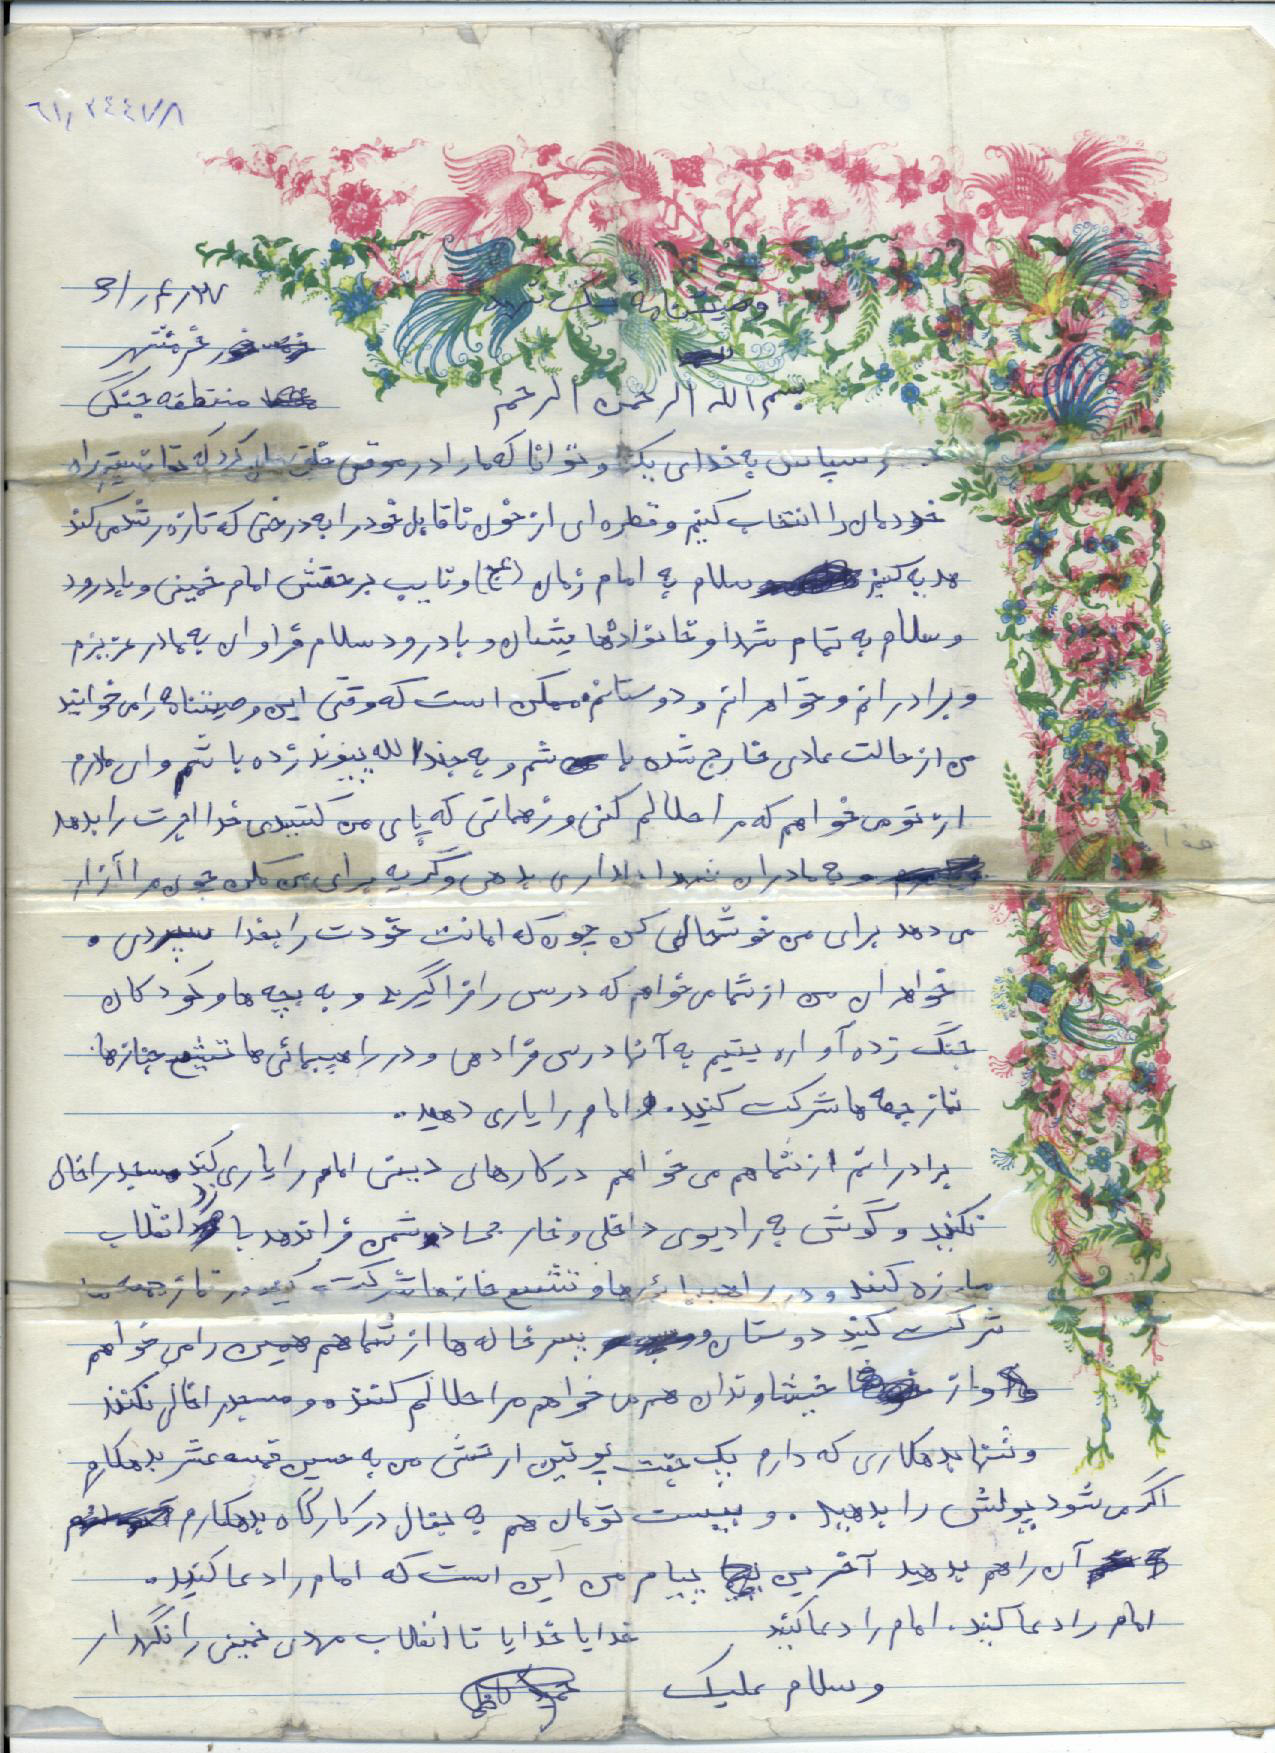 وصیتنامهٔ یک شهید
خرمشهر
منطقه جنگی
بسم الله الرحمن الرحیم
سپاس به خدای یکتا و توانا که ما را در موقعی خلق مان کرد که توانستیم راه
خودمان را انتخاب کنیم و قطره ای از خون ناقابل خود را به درختی که تازه رشد می کند
هدیه کنیم و سلام به امام زمان (عج) و نایب برحقش امام خمینی و با درود
و سلام به تمام شهدا و خانواده هایشان و با درود سلام فراوان به مادر عزیزم
و برادرانم و خواهرانم و دوستانم ممکن است که وقتی این وصیتنامه را می خوانید
من از حالت عادی خارج شده باشم و به جندالله پیوند زده باشم و ای مادرم
از تو می خواهم که مرا حلالم کنی و زحماتی که پای من کشیدی خدا اجرت را بدهد
و به مادران شهدا دلداری بدهی و گریه برای من مکن چون مرا آزار
می دهد برای من خوشحالی کن چون که امانت خودت را بخدا سپردی .
خواهران من از شما می خواهم که درس را فرا گیرید و به بچه ها و کودکان
جنگ زده آواره یتیم به آنها درس فرا دهی و در راهپیمائی ها تشییع جنازها
نماز جمعه ها شرکت کنید. و امام را یاری دهید..
برادرانم از شما هم می خواهم در کارهای دینی امام را یاری کنید مسجد را خالی
نکنید و گوش به رادیوی داخلی و خارجی دشمن فرا ندهد با ضد انقلاب
مبارزه کنید و در راهپیمائی ها و تشییع جنازها شرکت کنید در نماز جمعه
شرکت کنید دوستان و پسر خاله ها از شما هم همین را می خواهم
و از خیشاوندان هم می خواهم مرا حلالم کنند و مسجد را خالی نکنند
و تنها بدهکاری که دارم یک جفت پوتین ارتشی من به حسین بدهکارم
اگر می شود پولش را بدهید . و بیست تومان هم به بقال در کارگاه بدهکارم
آن را هم بدهید آخرین پیام من این است که امام را دعا کنید.
امام را دعا کنید. امام را دعا کنید خدایا خدایا تا انقلاب مهدی خمینی را نگهدار
و سلام علیک